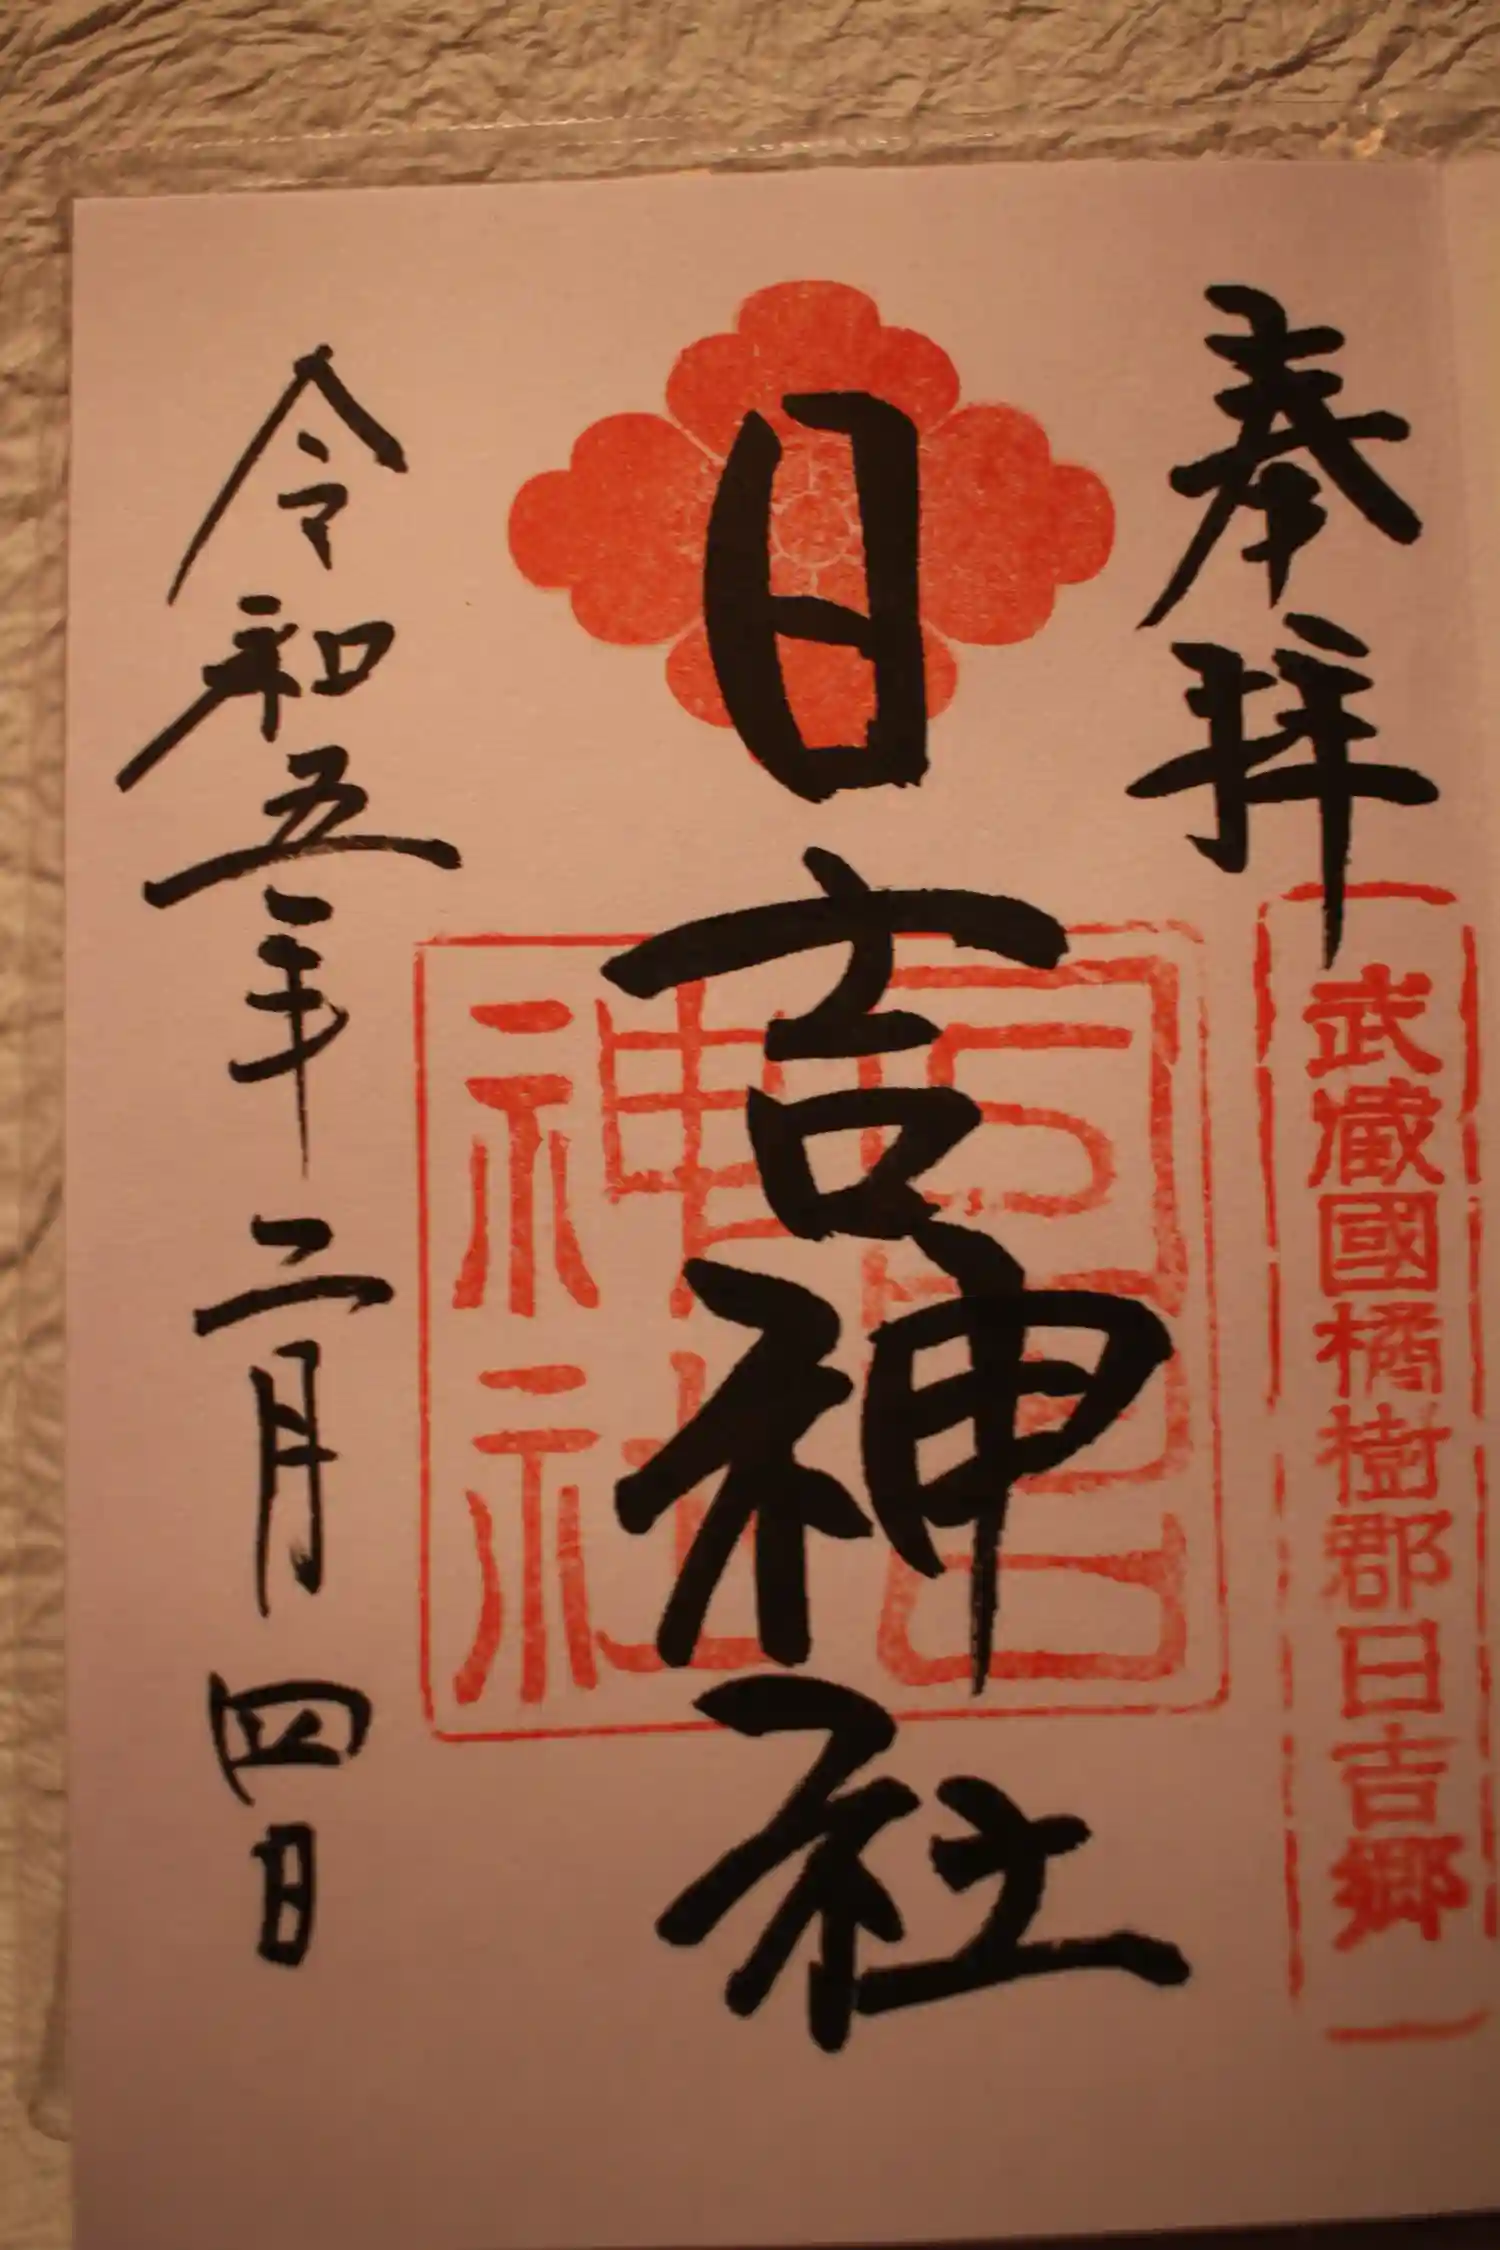 奉拝
武蔵國橘樹郡日吉郷
日吉神社
日吉
神社
令和五年二月四日